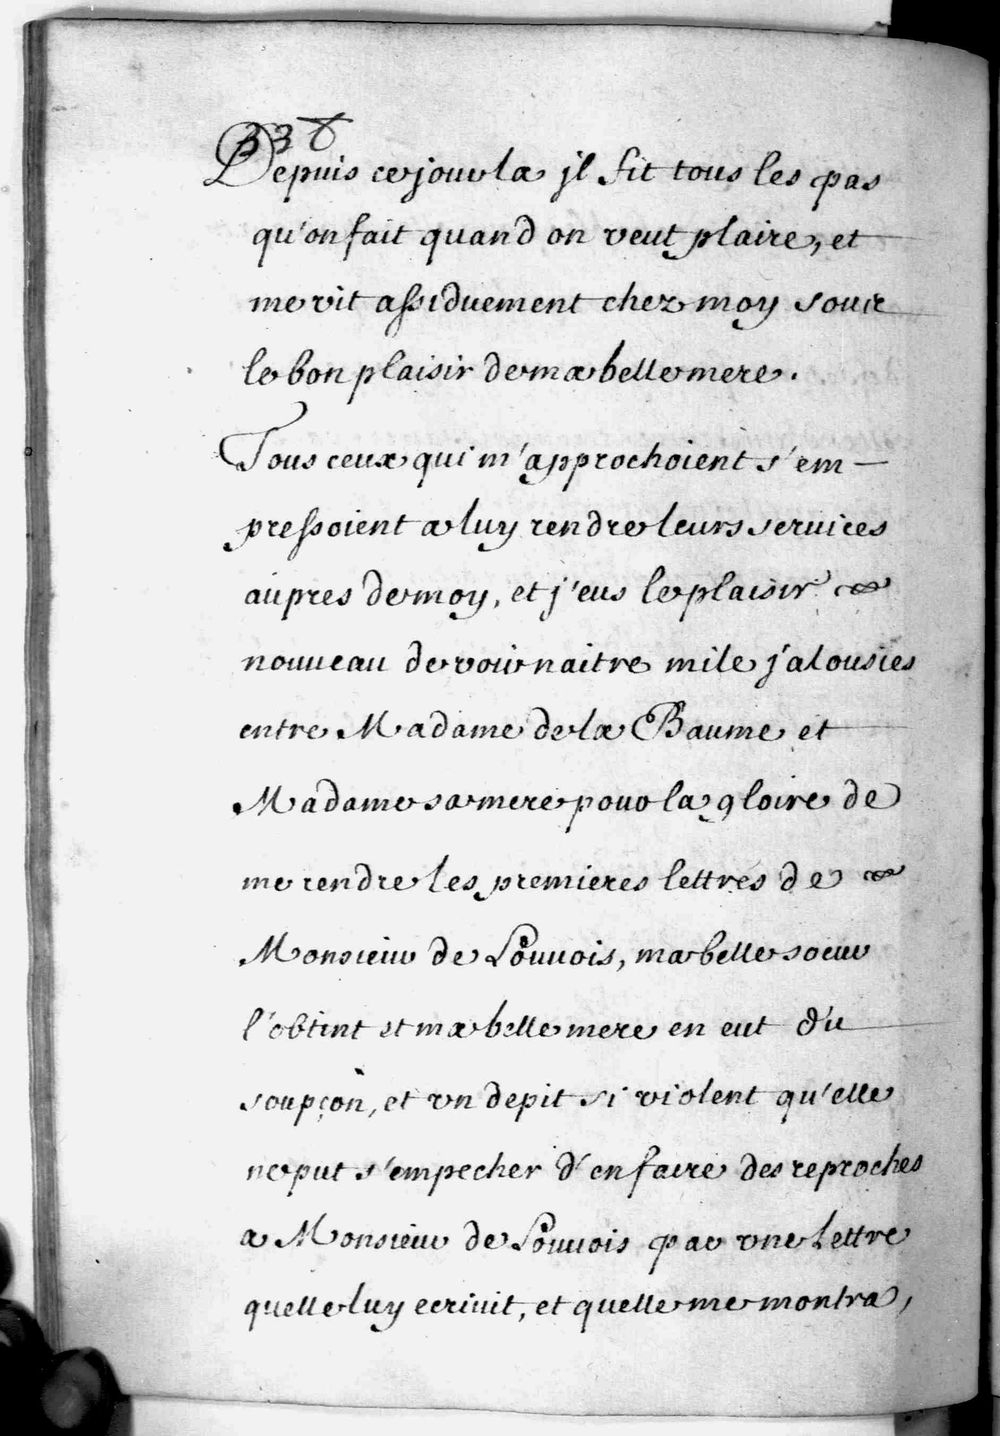 338
Depuis ce jour la jl fit tous les pas
qu'on fait quand on veut plaire, et
me vit assiduement chez moy sous
le bon plaisir de ma belle mere.
Tous ceux qui m'approchoient s'em-
pressoient a luy rendre leurs seruices
aupres de moy, et j'eus le plaisir
nouueau de voir naitre mile jalousies
entre Madame de la Baume et
Madame sa mere pour la gloire de
me rendre les premieres lettres de
Monsieur de Louuois, ma belle soeur
l'obtint et ma belle mere en eut du
soupçon, et vn depit si violent qu'elle
ne put s'empecher d'en faire des reproches
a Monsieur de Louuois par vne lettre
quelle luy ecriuit, et quelle me montra,